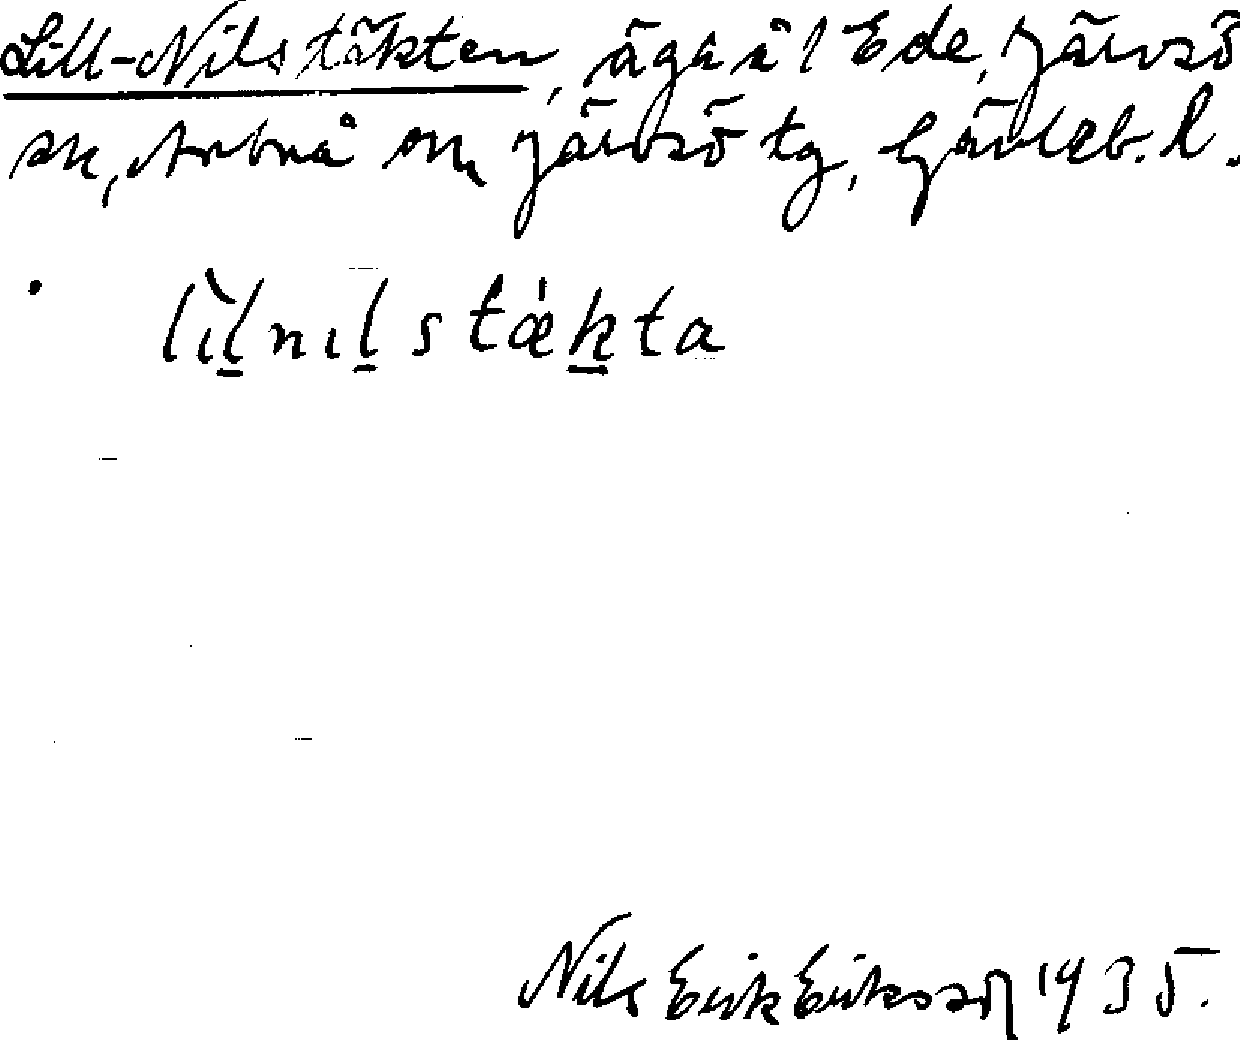 Lill-Nilstäkten, äga å l Ede, Järvsö
sn, Arbrå o Järvsö tg, Gävleb. l.
lìl̠nıl̠stæ̍k̠ta
Nils Erik Eriksson 1935.